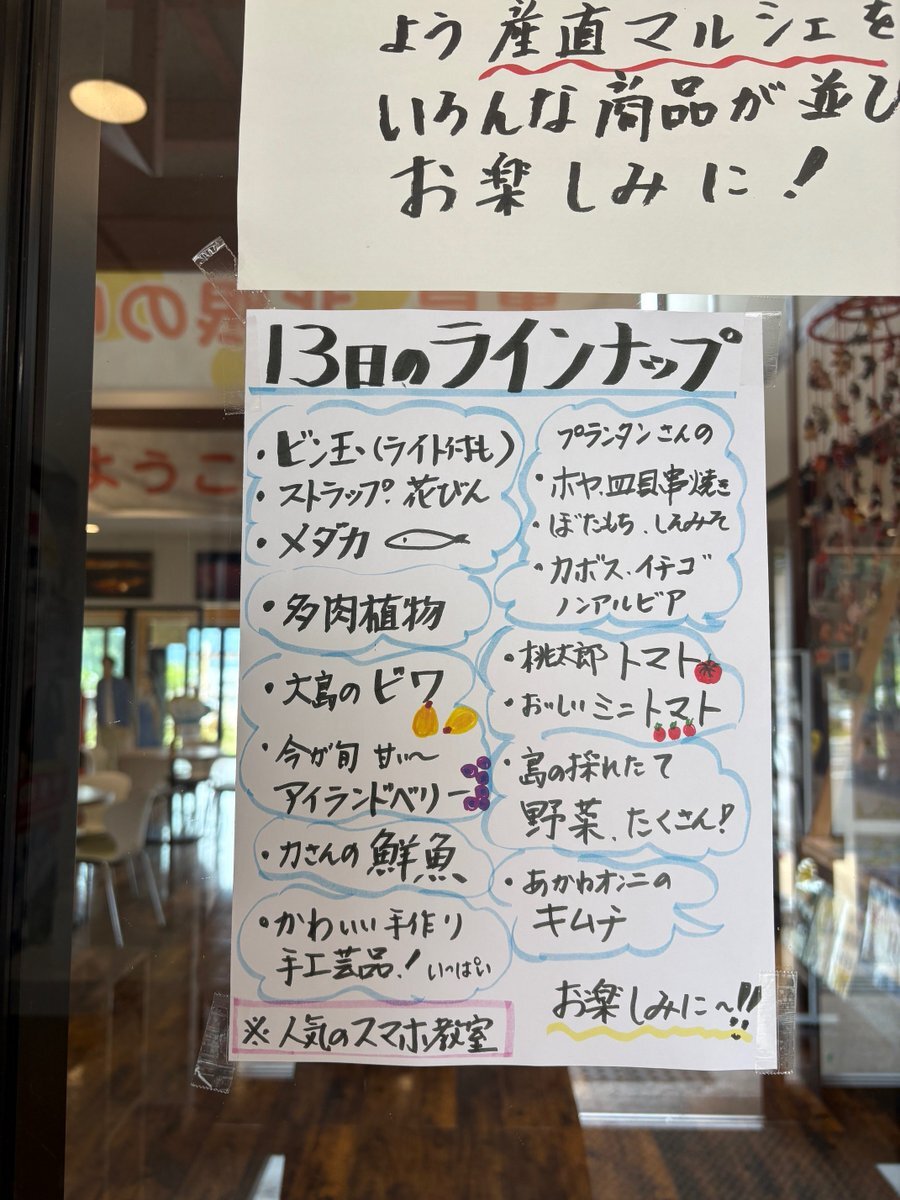 よう産直マルシェを
いろんな商品が並び
お楽しみに!
13日のラインナップ
・ビン玉(ライト付も)
・ストラップ 花びん
・メダカ
・多肉植物
・大島のビワ
・今が旬 甘い〜
アイランドベリー
・力さんの鮮魚
・かわいい手作り
手工芸品、! いっぱい
※人気のスマホ教室
プランタンさんの
・ホヤ、皿貝串焼き
・ぼたもち、しそみそ
・カボス、イチゴ
ノンアルビア
・桃太郎トマト
・おいしいミニトマト
・島の採れたて
野菜、たくさん!
・あかねオンニの
キムチ
お楽しみに〜!!
ようこ